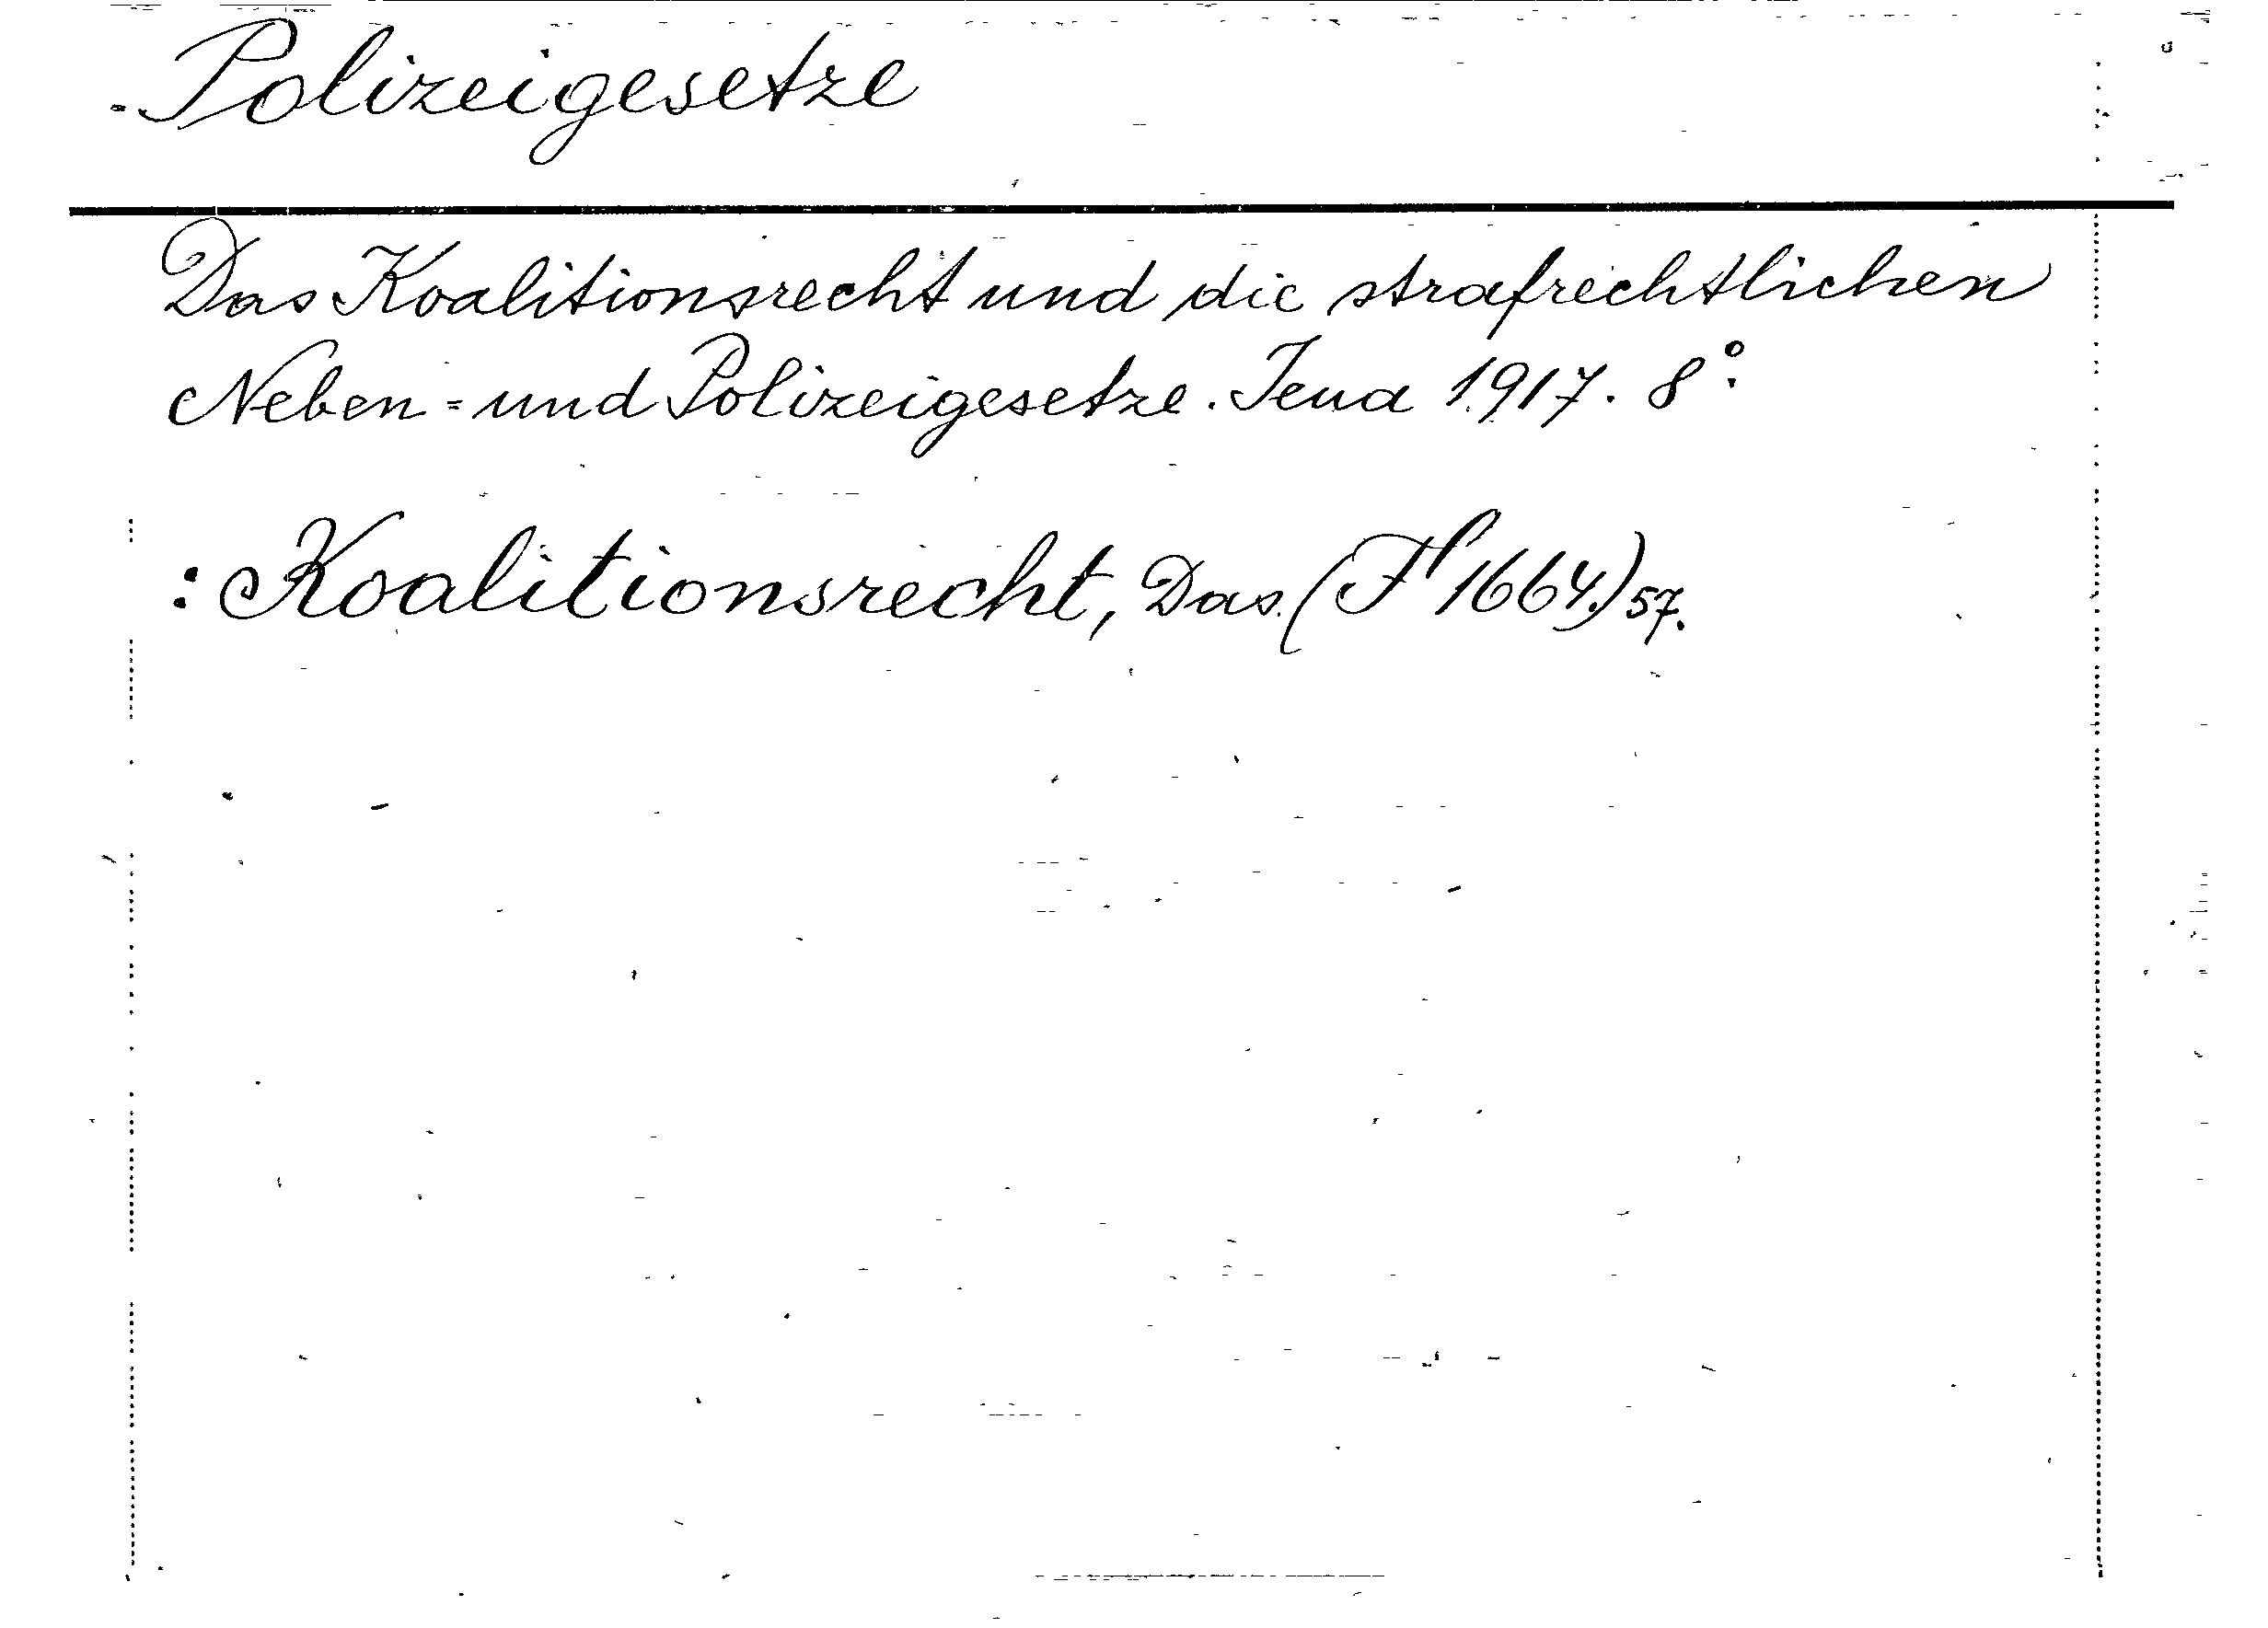 Polizeigesetze
Das Koalitionsrecht und die strafrechtlichen
Neben= und Polizeigesetze. Jena 1917. 8°.
: Koalitionsrecht, Das. (Fl 1664.) 57.